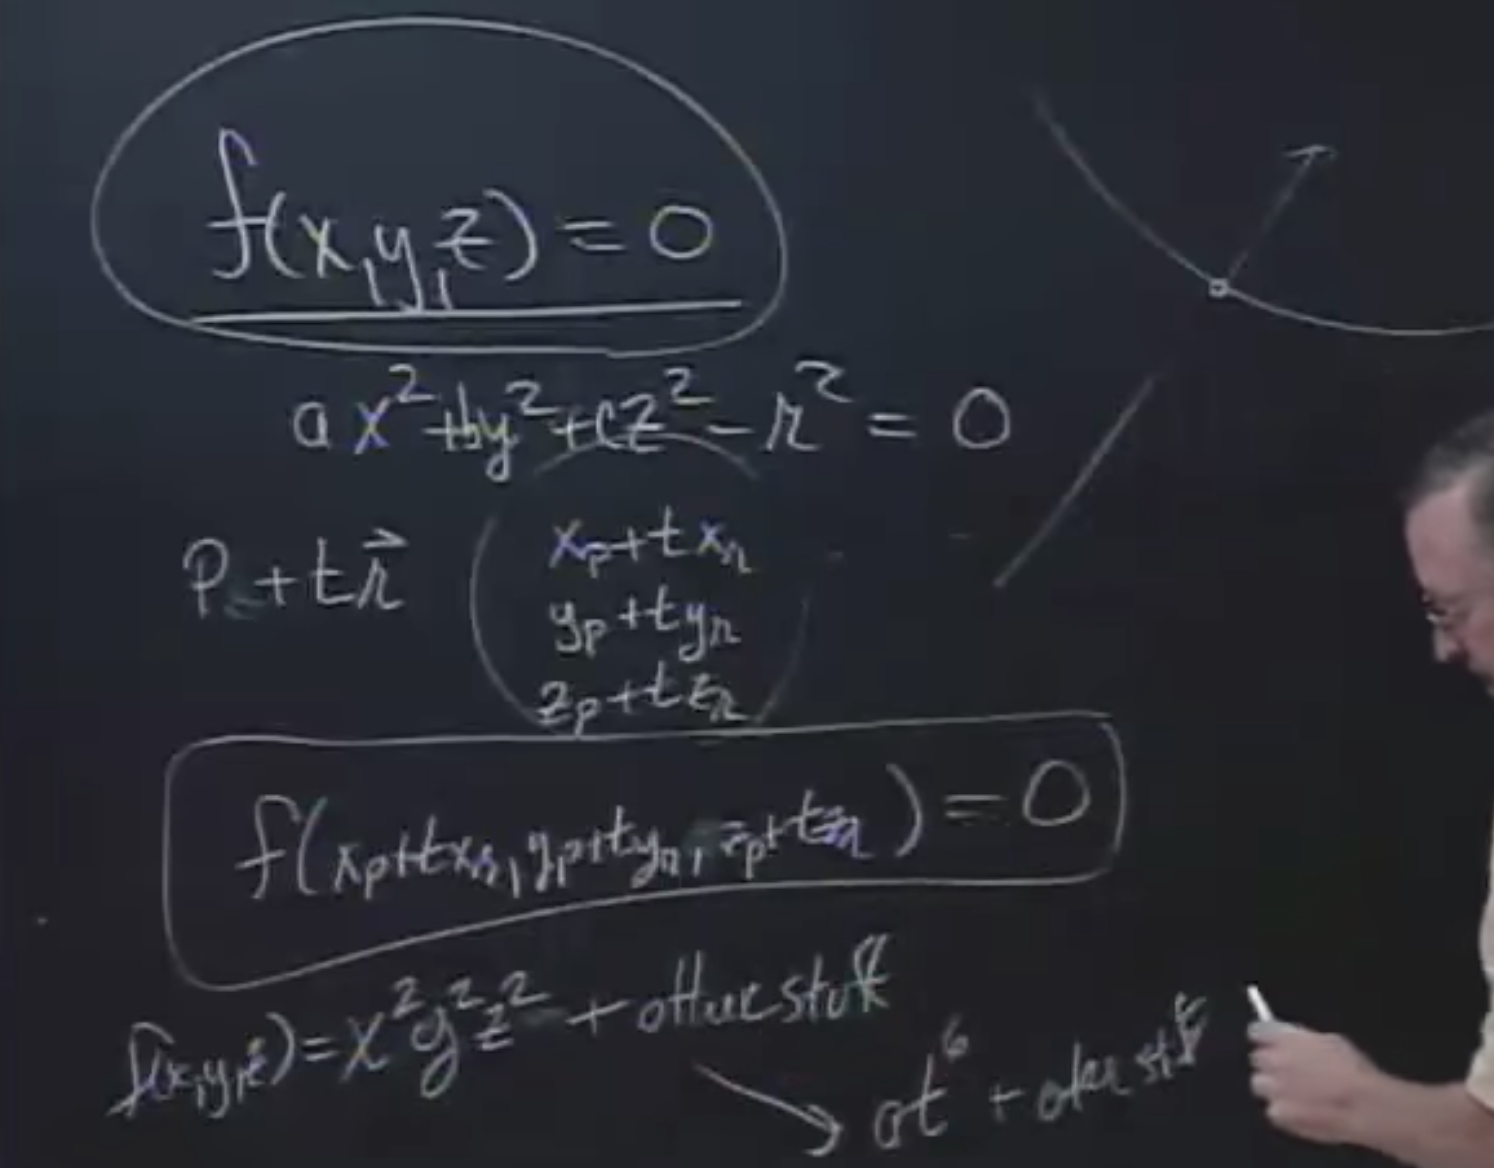 f(x,y,z) = 0
ax²+by²+cz²-r² = 0
P + tr⃗
xₚ+txᵣ
yₚ+tyᵣ
zₚ+tzᵣ
f(xₚ+txᵣ, yₚ+tyᵣ, zₚ+tzᵣ) = 0
f(x,y,z) = x²y²z² + other stuff
at⁶ + other stuff